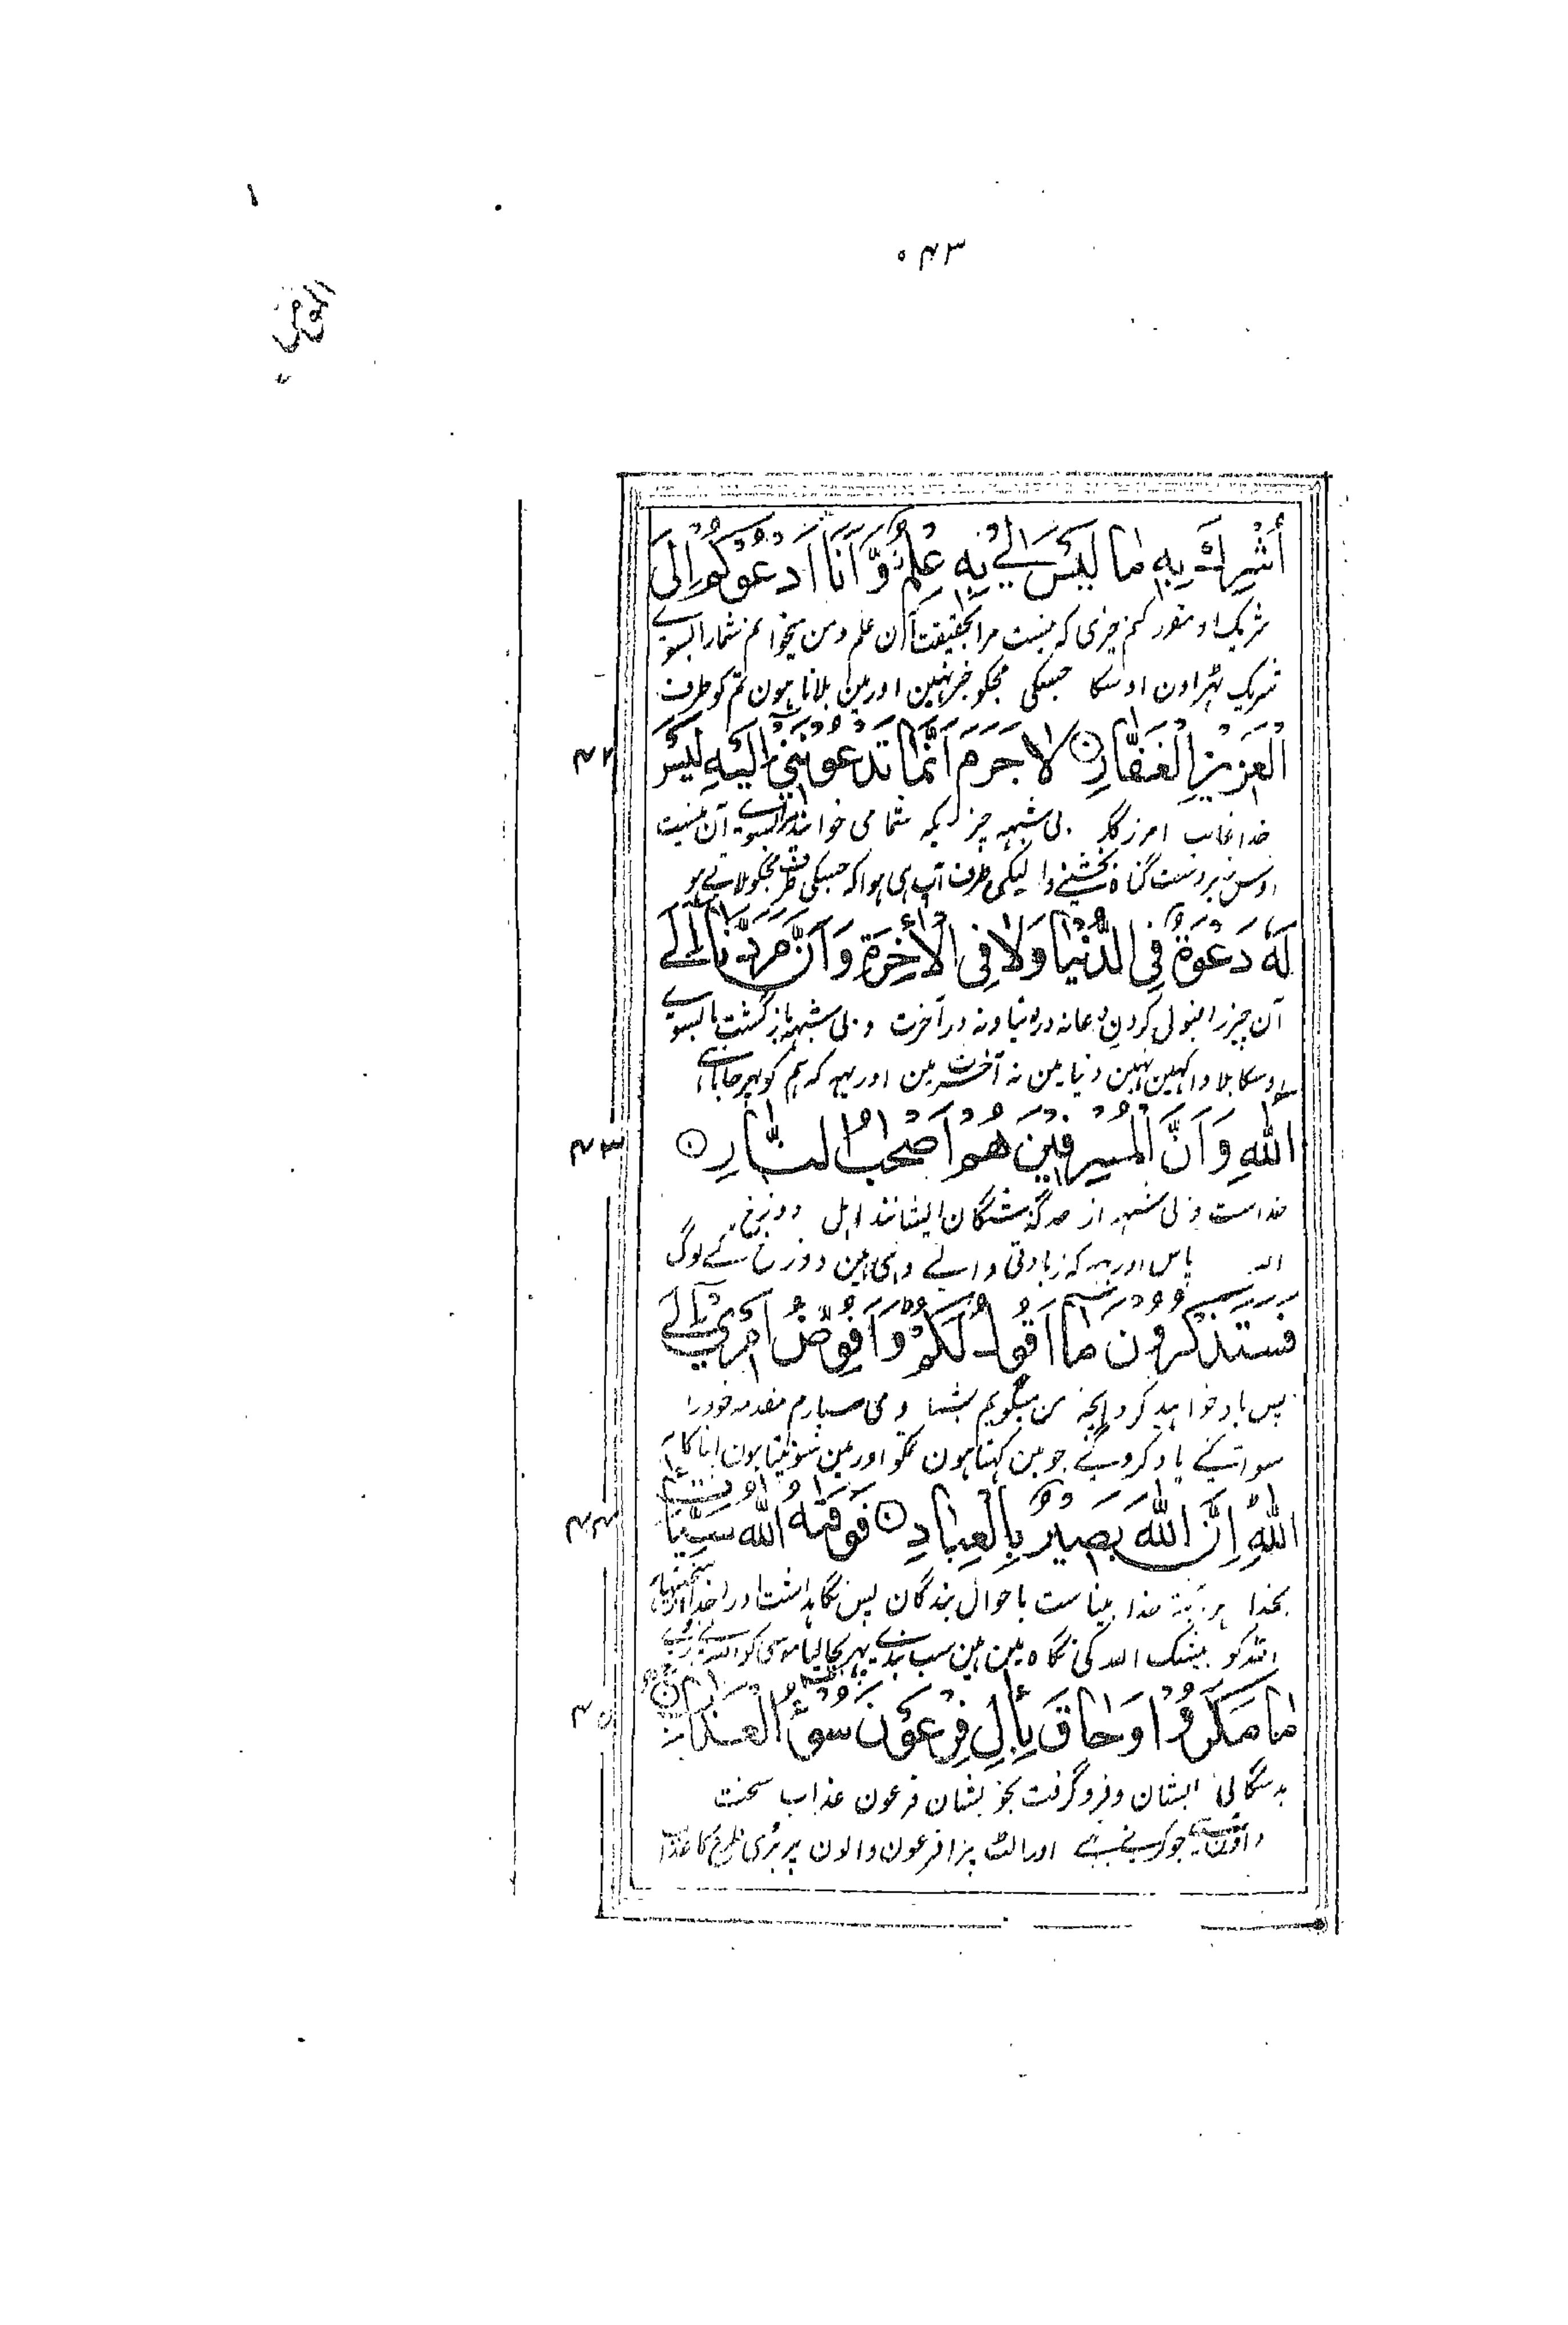 ۵۴۳
المؤمن
أُشْرِكَ بِهٖ مَا لَيْسَ لِيْ بِهٖ عِلْمٌ وَّ اَنَا اَدْعُوْكُمْ اِلَى
شریک او مقرر کنم چیزی که نیست مرا بحقیقت آن علم و من میخوانم شما را بسوے
شریک ٹہراون اوسکا جسکی مجکو خبر نہین اور مین بلاتا ہون تمکو طرف
الْعَزِيْزِ الْغَفَّارِ ۝ لَا جَرَمَ اَنَّمَا تَدْعُوْنَنِيْ اِلَيْهِ لَيْسَ
۴۲
خدا غالب امرزگار بی شبهه چیزیکه شما می خوانید مرا بسوے آن نیست
اوس زبردست گناہ بخشنے والیکی طرف آپ ہی ہوا کہ جسکی طرف مجکو بلاتے ہو
لَهٗ دَعْوَةٌ فِي الدُّنْيَا وَلَا فِي الْاٰخِرَةِ وَاَنَّ مَرَدَّنَا اِلَى
آن چیز را قبولی کردن دعا نه در دنیا و نه در آخرت و بی شبهه بازگشت ما بسوے
اوسکا بلاوا کہین نہین دنیا مین نہ آخرت مین اور یہہ کہ ہم کو پہر جانا ہے
اللّٰهِ وَاَنَّ الْمُسْرِفِيْنَ هُمْ اَصْحٰبُ النَّارِ ۝
۴۳
خداست و بی شبهه از حد گذشتگان ایشانند اهل دوزخ
اللہ پاس اور یہہ کہ زیادتی والے وہی ہین دوزخ کے لوگ
فَسَتَذْكُرُوْنَ مَا اَقُوْلُ لَكُمْ وَاُفَوِّضُ اَمْرِيْ اِلَى
پس یاد خواهید کرد آنچه من میگویم بشما و می سپارم مقدمه خود را
سو آگے یاد کروگے جو مین کہتا ہون تمکو اور مین سونپتا ہون اپنا کام
اللّٰهِ اِنَّ اللّٰهَ بَصِيْرٌ بِالْعِبَادِ ۝ فَوَقٰىهُ اللّٰهُ سَيِّاٰتِ
۴۴
بخدا هر آینه خدا بیناست باحوال بندگان پس نگاهداشت او را خدا از سختیهای
اللہ کو بیشک اللہ کی نگاہ مین ہین سب بندے پہر بچا لیا موسی کو اللہ نے
مَا مَكَرُوْا وَحَاقَ بِاٰلِ فِرْعَوْنَ سُوْٓءُ الْعَذَابِ ۝
۴۵
بدسگالی ایشان و فرو گرفت بخویشان فرعون عذاب سخت
داؤن سے جو کرتے تہے اور الٹ پڑا فرعون والون پر بری طرح کا عذاب